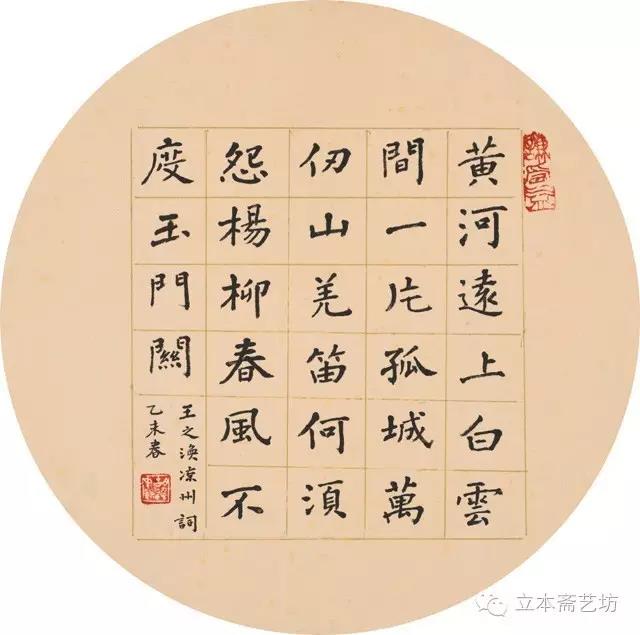 黄河遠上白雲
間一片孤城萬
仞山羌笛何須
怨楊柳春風不
度玉門關
王之渙凉州詞
乙未春
立本斋艺坊